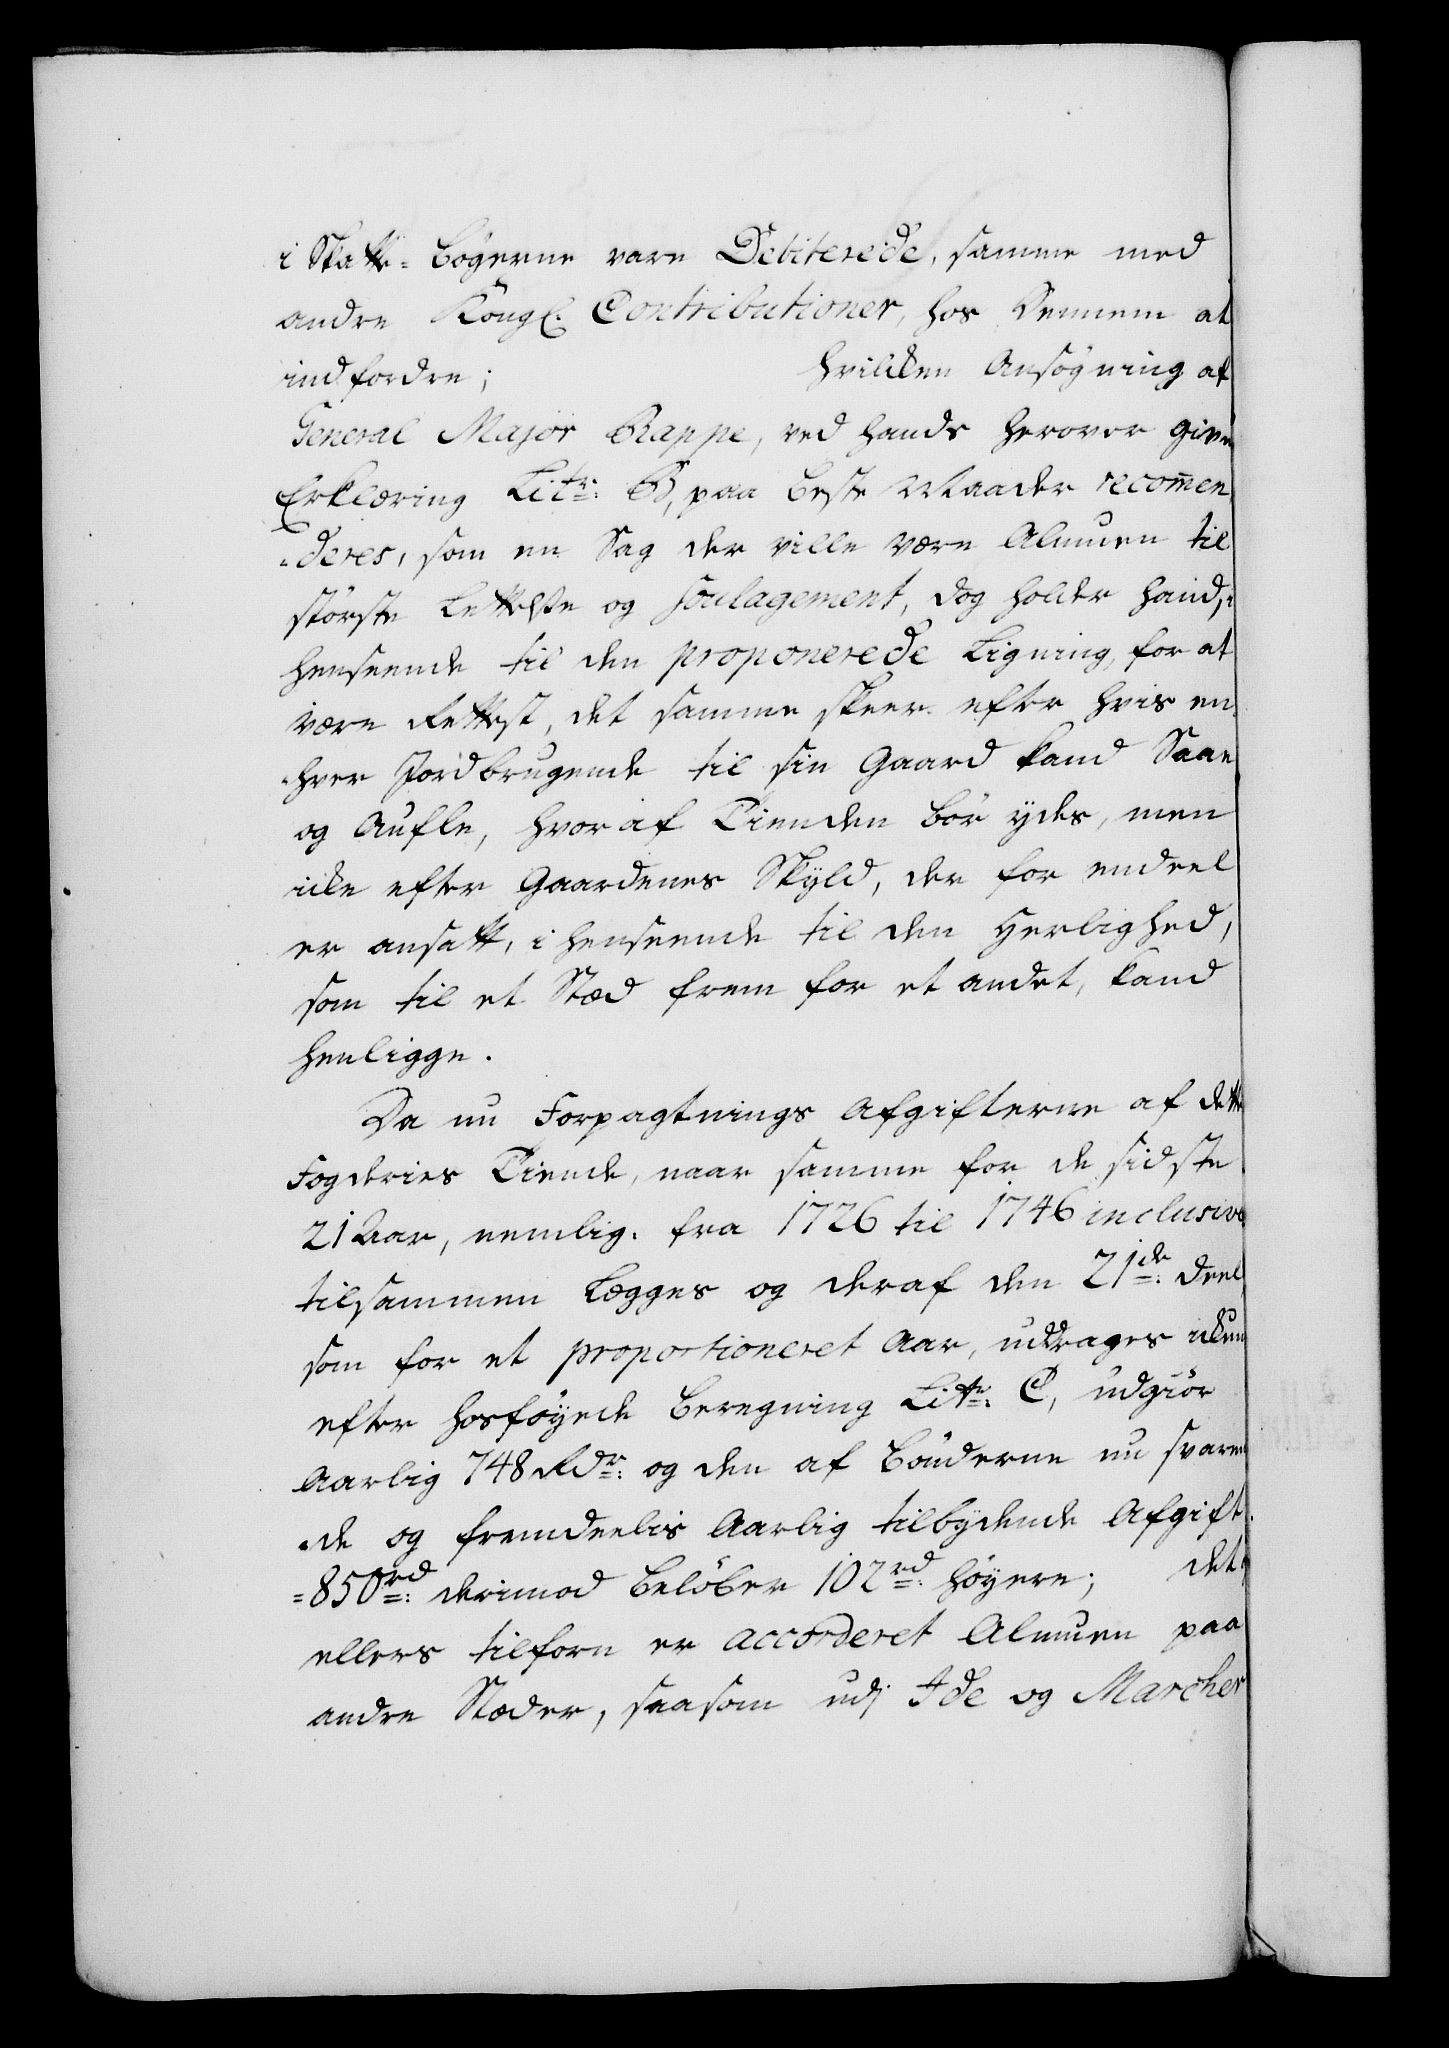 i Skatte-Bøgerne vare Debiterede, samme med
andre Kongl. Contributioner, hos Dennem at
indfordre; hvilken Ansøgning af
General Major Rappe, ved hands herover given
Erklæring Litr: B, paa beste Maader recom̄en
=deres, som en Sag der ville være Almuen til
største Lettelse og soulagement, dog holder hand, i
henseende til den proponerede Ligning, for at
være Rettest, det samme skeer efter hvis en
=hver Jordbrugende til sin Gaard kand Saae
og Aufle, hvoraf Tienden bør ydes, men
icke efter Gaardenes Skyld, der for endeel
er ansatt, i henseende til den Herlighed,
som til et Stæd frem for et andet, kand
henligge.
Da nu Forpagtnings Afgifterne af dette
Fogderies Tiende, naar samme for de sidste
21 Aar, nemlig. fra 1726 til 1746 inclusive
tilsammen Lægges og deraf den 21de: Deel
som for et proportioneret Aar, uddrages ickun
efter hosføyede Beregning Litr: C, udgiør
Aarlig 748 Rdr: og den af Bønderne nu svaren
=de og fremdeelis Aarlig tilbydende Afgift
=850rd: derimod beløber 102rd: høyere; det
ellers tilforn er accorderet Almuen paa
andre Stæder, saasom udj Ide og Marcher